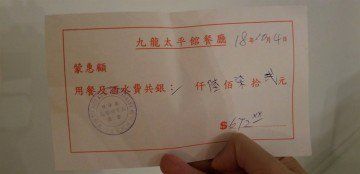 九龍太平館餐廳 18年10月4日
蒙惠顧
用餐及酒水費共銀:/ 仟陸佰柒拾貳元
$672.00